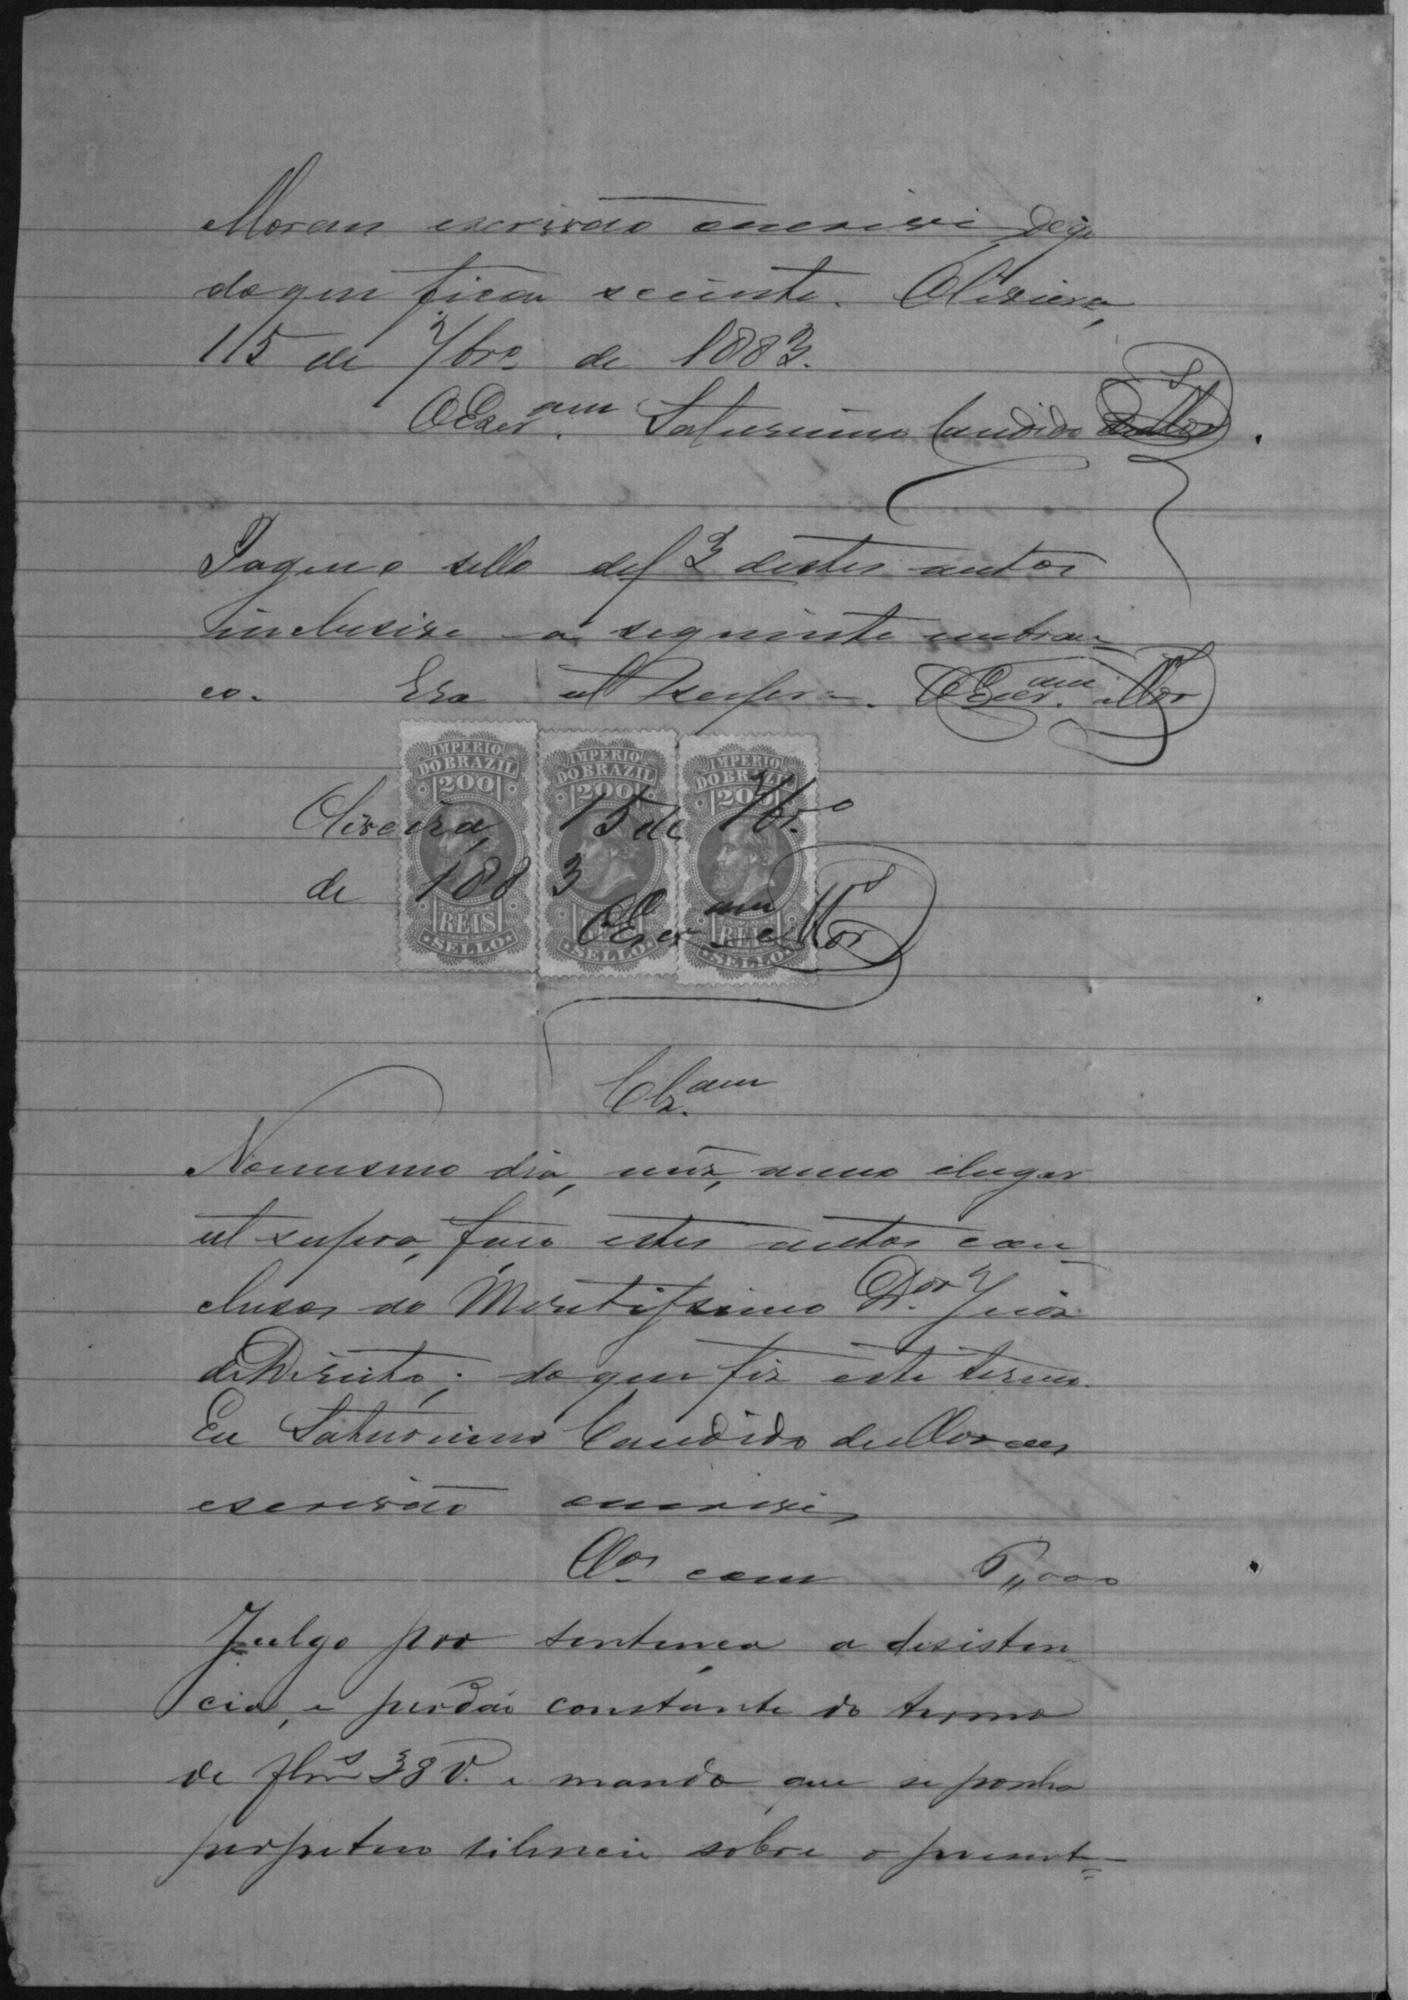 Moraes escrivão o escrevi digo
do que ficou sciente. Oliveira,
15 de 7bro de 1883.
O Escram. Saturnino Candido de Mor.
Pague o sello de f 3 destes autos
inclusive a seguinte embran
co. Era ut supra. O Escram. Mor
IMPERIO DO BRAZIL 200 REIS SELLO
IMPERIO DO BRAZIL 200 REIS SELLO
IMPERIO DO BRAZIL 200 REIS SELLO
Oliveira 15 de 7bro
de 1883
O Escram. Mor
Clzam.
No mesmo dia, mez, anno e lugar
ut supra, faço estes autos con
clusos ao Meritissimo Dor. Juiz
de Direito; do que fiz este termo.
Eu Saturnino Candido de Moraes
escrivão o escrevi
Clos. com
Julgo por sentença a desisten
cia, e perdão constante do termo
de flhs 38 v. e mando que se ponha
perpetuo silencio sobre o presente